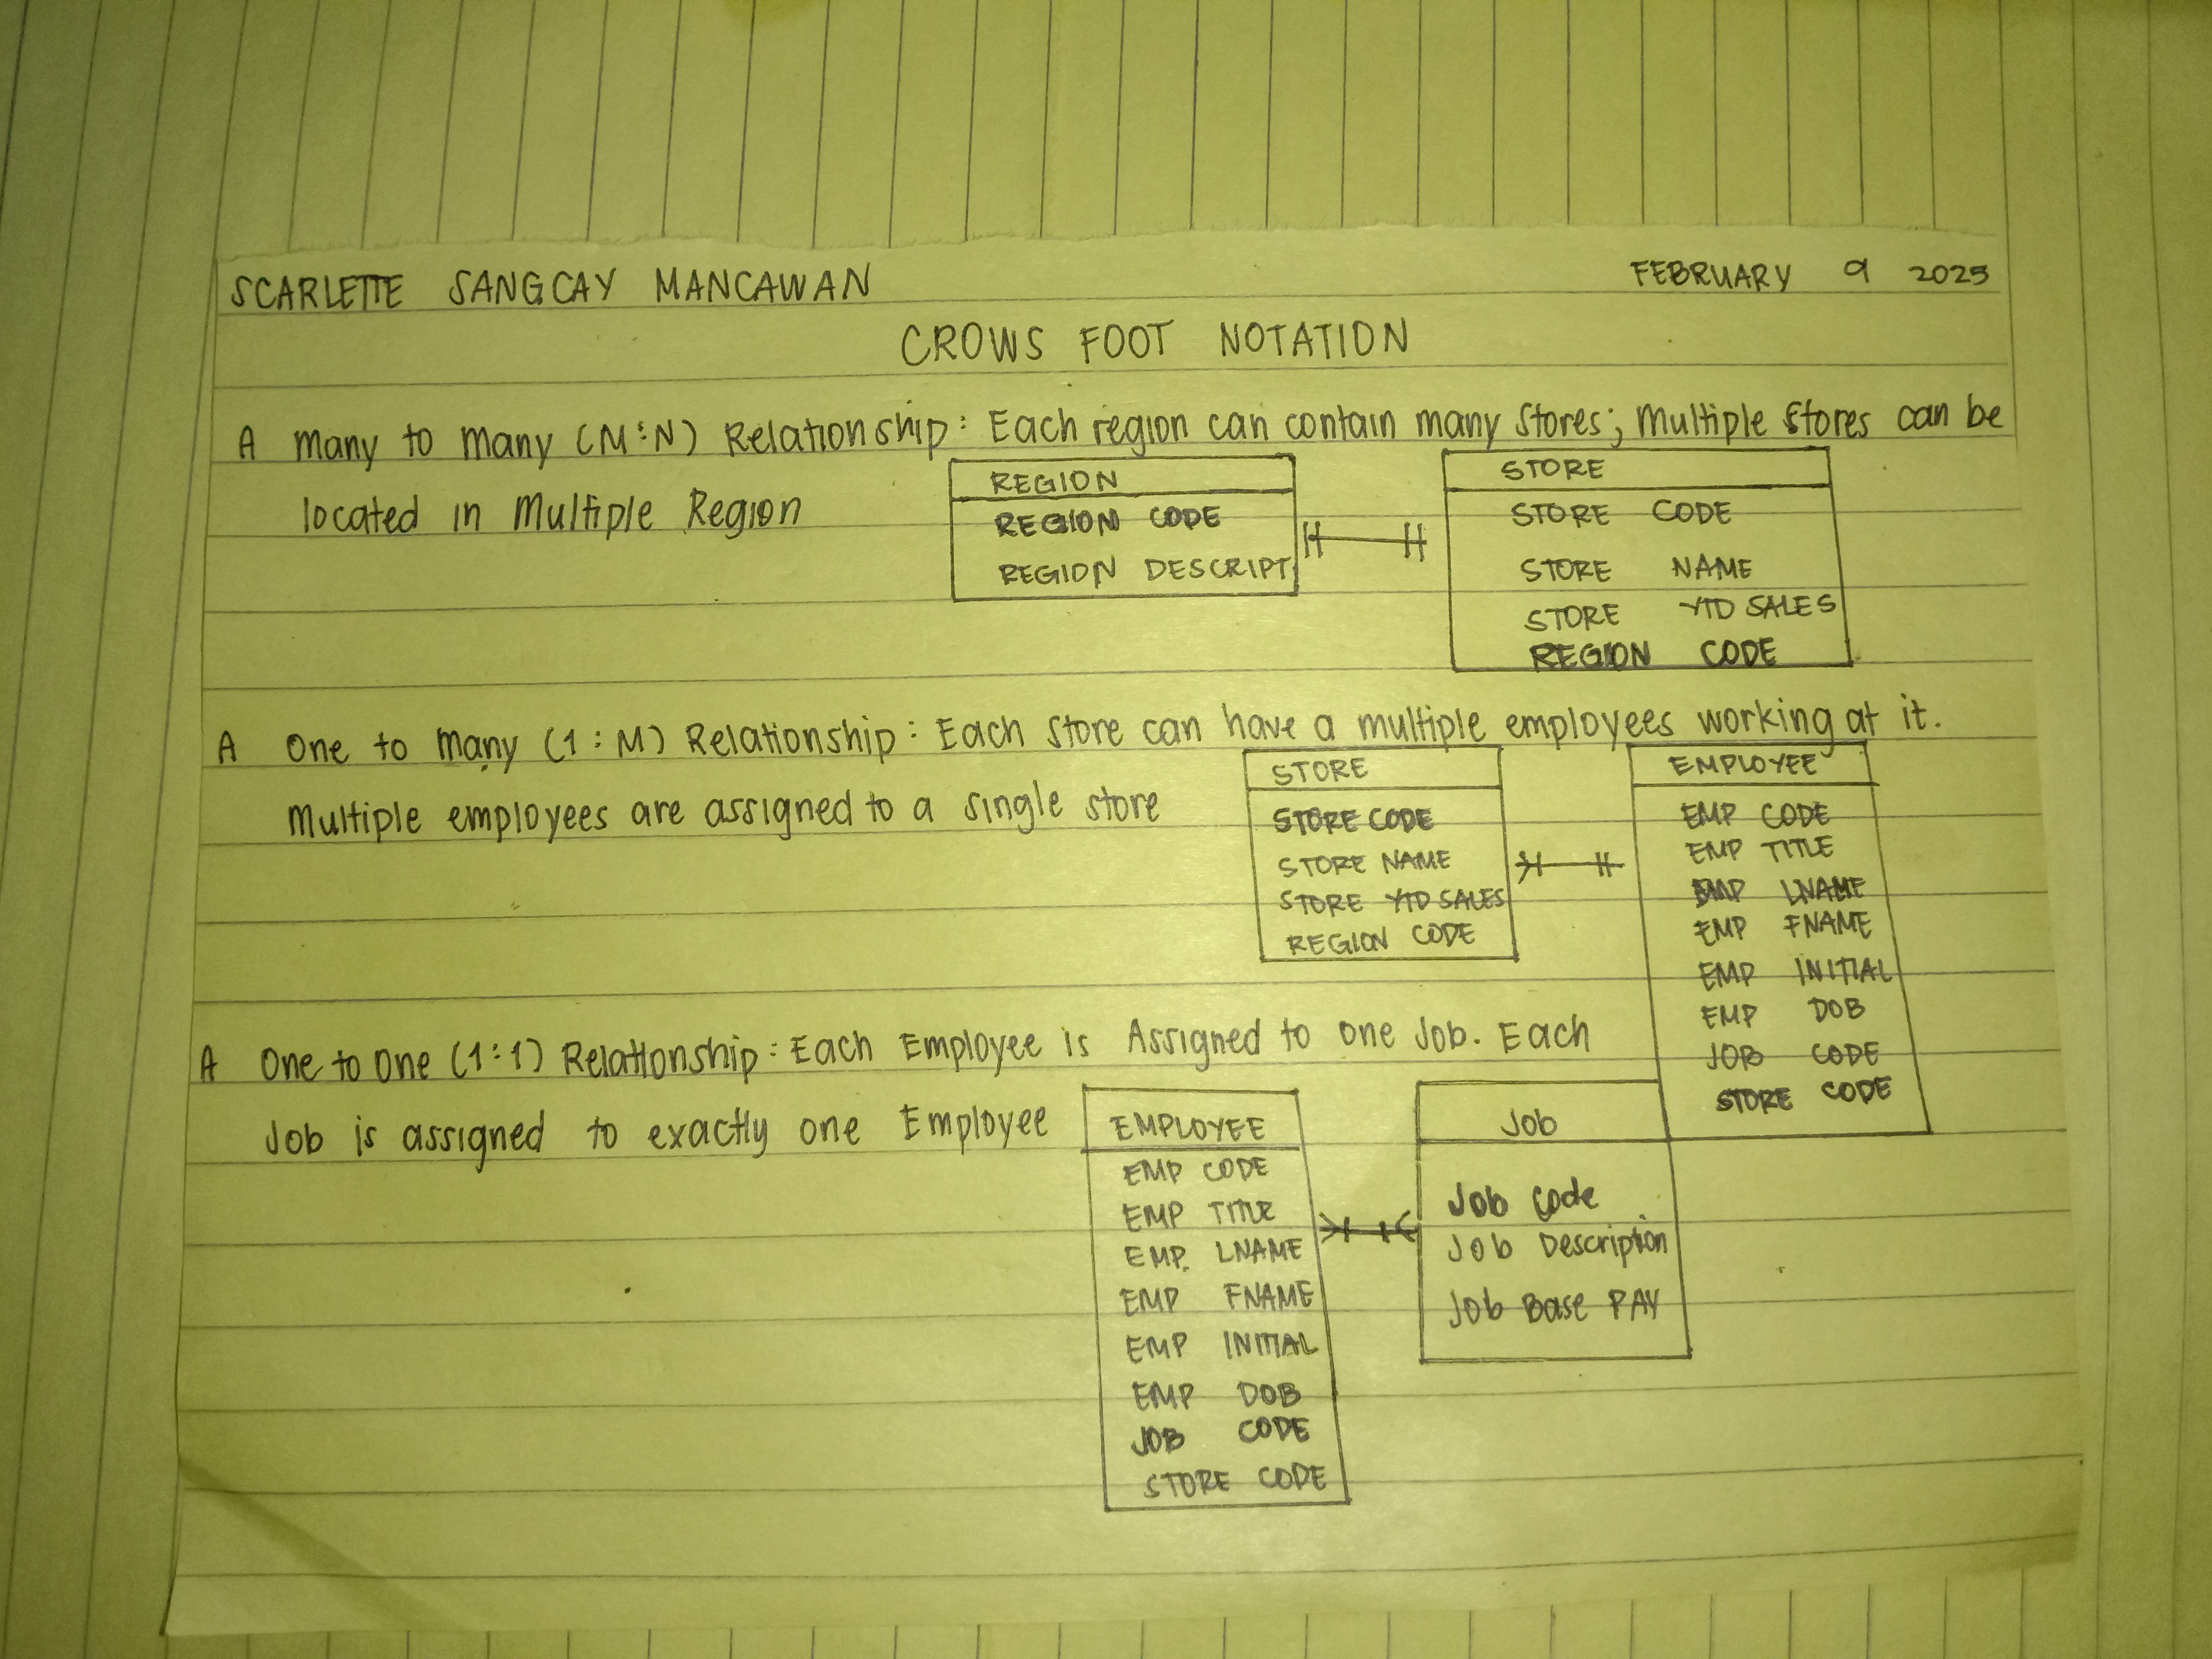 SCARLETTE SANGCAY MANCAWAN FEBRUARY 9 2025
CROWS FOOT NOTATION
A many to many (M:N) Relationship: Each region can contain many stores; Multiple stores can be
located in Multiple Region
REGION
REGION CODE
REGION DESCRIPT
STORE
STORE CODE
STORE NAME
STORE YTD SALES
REGION CODE
A One to many (1:M) Relationship: Each store can have a multiple employees working at it.
Multiple employees are assigned to a single store
STORE
STORE CODE
STORE NAME
STORE YTD SALES
REGION CODE
EMPLOYEE
EMP CODE
EMP TITLE
EMP LNAME
EMP FNAME
EMP INITIAL
EMP DOB
JOB CODE
STORE CODE
A One to One (1:1) Relationship: Each Employee is Assigned to one Job. Each
Job is assigned to exactly one Employee
EMPLOYEE
EMP CODE
EMP TITLE
EMP. LNAME
EMP FNAME
EMP INITIAL
EMP DOB
JOB CODE
STORE CODE
Job
Job Code
Job Description
Job Base PAY